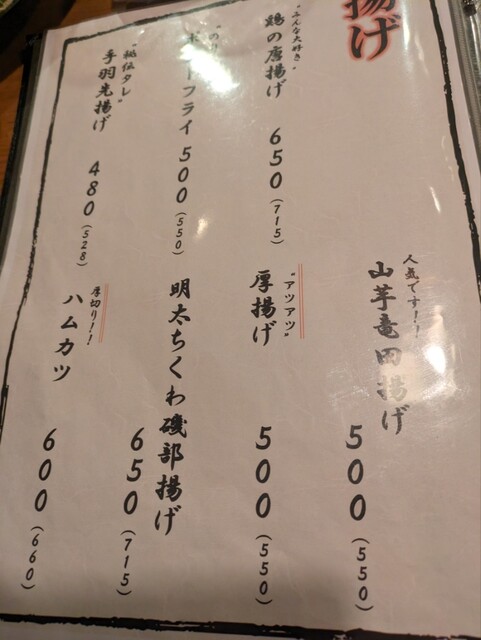 揚げ
"みんな大好き"
鶏の唐揚げ
650(715)
フライ
500(550)
"秘伝タレ"
手羽先揚げ
480(528)
人気です!!
山芋竜田揚げ
500(550)
"アツアツ"
厚揚げ
500(550)
明太ちくわ磯部揚げ
650(715)
厚切り!!
ハムカツ
600(660)